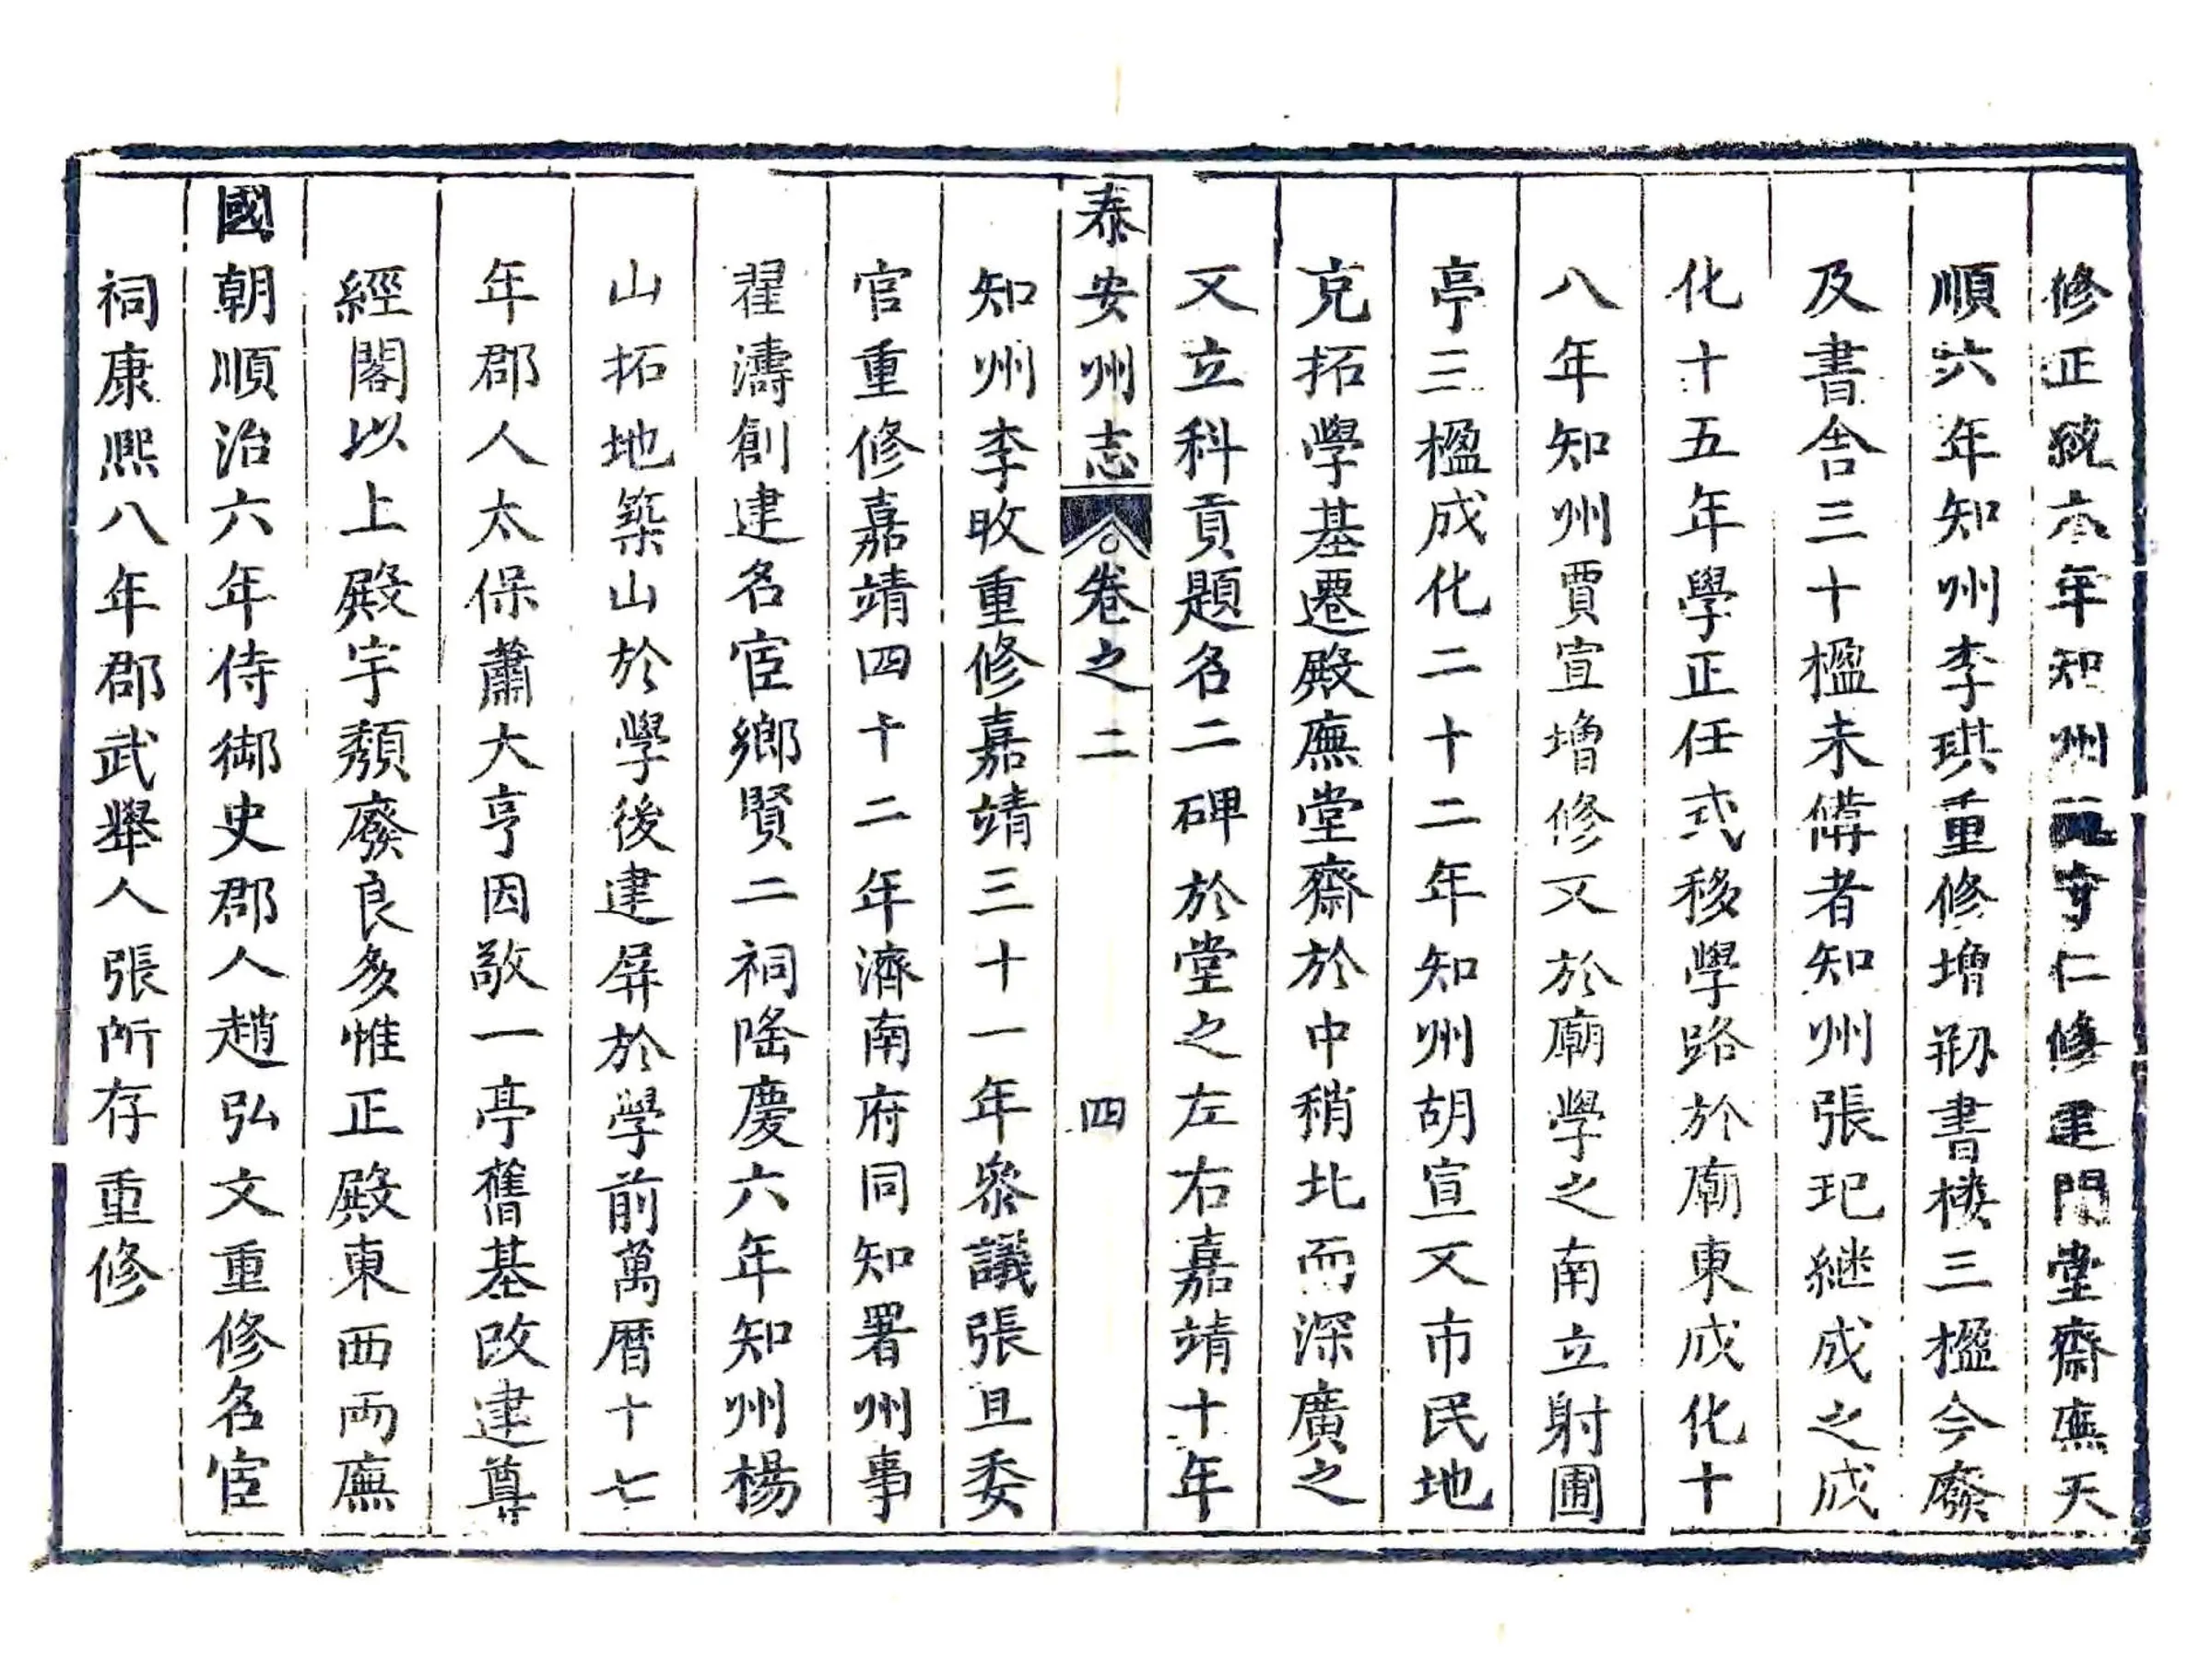 修正統六年知州守仁修建門堂齋廡天
順六年知州李琪重修增剏書楼三楹今廢
及書舍三十楹未俻者知州張玘継成之成
化十五年學正任式移學路於廟東成化十
八年知州賈宣増修又於廟學之南立射圃
亭三楹成化二十二年知州胡宣又市民地
克拓學基遷殿廡堂齋於中稍北而深廣之
又立科貢題名二碑於堂之左右嘉靖十年
泰安州志 卷之二 四
知州李旼重修嘉靖三十一年叅議張旦委
官重修嘉靖四十二年濟南府同知署州事
翟濤創建名宦鄉賢二祠隆慶六年知州楊
山拓地築山於學後建屏於學前萬曆十七
年郡人太保蕭大亨因敬一亭舊基改建尊
經閣以上殿宇頽廢良多惟正殿東西両廡
國朝順治六年侍御史郡人趙弘文重修名宦
祠康熙八年郡武舉人張所存重修